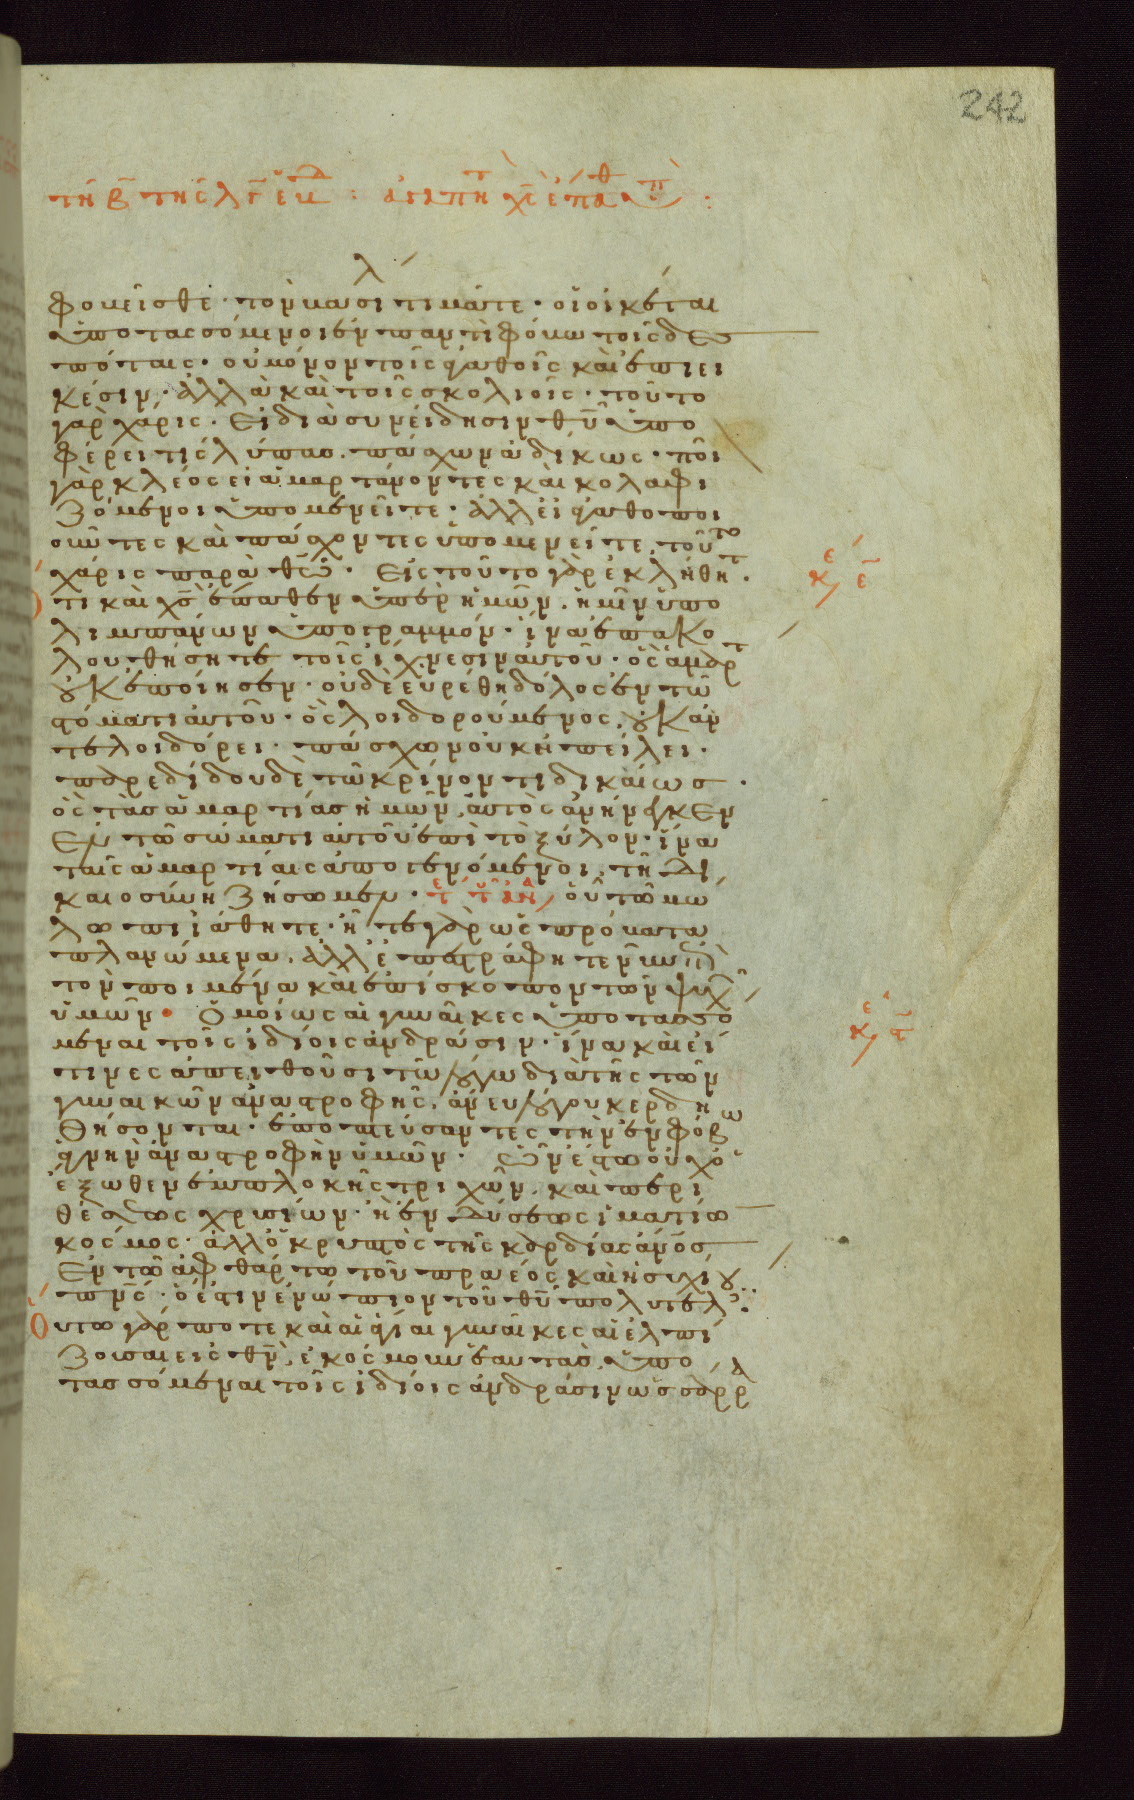 242
τῆ β τῆς λγ ἑβδ : ἀγαπη χς ἐπαθ ὑπ :
φοβεῖσθε · τὸν βασιλέα τιμᾶτε · οἱ οἰκέται
ὑποτασσόμενοι ἐν παντὶ φόβω τοῖς δεσ
πόταις · οὐ μόνον τοῖς ἀγαθοῖς καὶ ἐπιει
κέσιν · ἀλλὰ καὶ τοῖς σκολιοῖς · τοῦτο
γὰρ χάρις · Εἰ διὰ συνείδησιν θῦ ὑπο
φέρει τις λύπας πάσχων ἀδίκως · ποῖ
γὰρ κλέος εἰ ἁμαρτάνοντες καὶ κολαφι
ζόμενοι ὑπομενεῖτε · ἀλλ εἰ ἀγαθοποι
οῦντες καὶ πάσχοντες ὑπομενεῖτε · τοῦτο
χάρις παρὰ θῶ · Εἰς τοῦτο γὰρ ἐκλήθητ · κε ε
τι καὶ χς ἔπαθεν ὑπὲρ ἡμῶν · ἡμῖν ὑπο
λιμπάνων ὑπογραμμόν · ἵνα ἐπακο
λουθήσητε τοῖς ἴχνεσιν αὐτοῦ · ὃς ἁμαρτ
οὐκ ἐποίησεν · οὐδὲ εὑρέθη δόλος ἐν τῶ
στόματι αὐτοῦ · ὃς λοιδορούμενος οὐκ ἀν
τελοιδόρει · πάσχων οὐκ ἠπείλει ·
παρεδίδου δὲ τῶ κρίνοντι δικαίως ·
ὃς τὰς ἁμαρτίας ἡμῶν αὐτὸς ἀνήνεγκεν
Ἐν τῶ σώματι αὐτοῦ ἐπὶ τὸ ξύλον · ἵνα
ταῖς ἁμαρτίαις ἀπογενόμενοι τῆ δι
καιοσύνη ζήσωμεν · οὗ τῶ μώ
λωπι ἰάθητε · ἦτε γὰρ ὡς πρόβατα
πλανώμενα · ἀλλ ἐπεστράφητε νῦν ἐπὶ
τὸν ποιμένα καὶ ἐπίσκοπον τῶν ψυχῶν
ὑμῶν · Ὁμοίως αἱ γυναῖκες ὑποτασσό
μεναι τοῖς ἰδίοις ἀνδράσιν · ἵνα καὶ εἴ
τινες ἀπειθοῦσι τῶ λόγω διὰ τῆς τῶν
γυναικῶν ἀναστροφῆς · ἄνευ λόγου κερδη
θήσονται · ἐποπτεύσαντες τὴν ἐν φόβω
ἁγνὴν ἀναστροφὴν ὑμῶν · ὧν ἔστω οὐχ ὁ
ἔξωθεν ἐμπλοκῆς τριχῶν · καὶ περι
θέσεως χρυσίων · ἢ ἐνδύσεως ἱματίων
κόσμος · ἀλλ ὁ κρυπτὸς τῆς καρδίας ἄνος
Ἐν τῶ ἀφθάρτω τοῦ πραέος καὶ ἡσυχίου
πνς · ὅ ἐστιν ἐνώπιον τοῦ θῦ πολυτελ
Οὕτω γάρ ποτε καὶ αἱ ἅγιαι γυναῖκες αἱ ἐλπί
ζουσαι εἰς θν ἐκόσμουν ἑαυτὰς ὑπο
τασσόμεναι τοῖς ἰδίοις ἀνδράσιν ὡς σάρρα